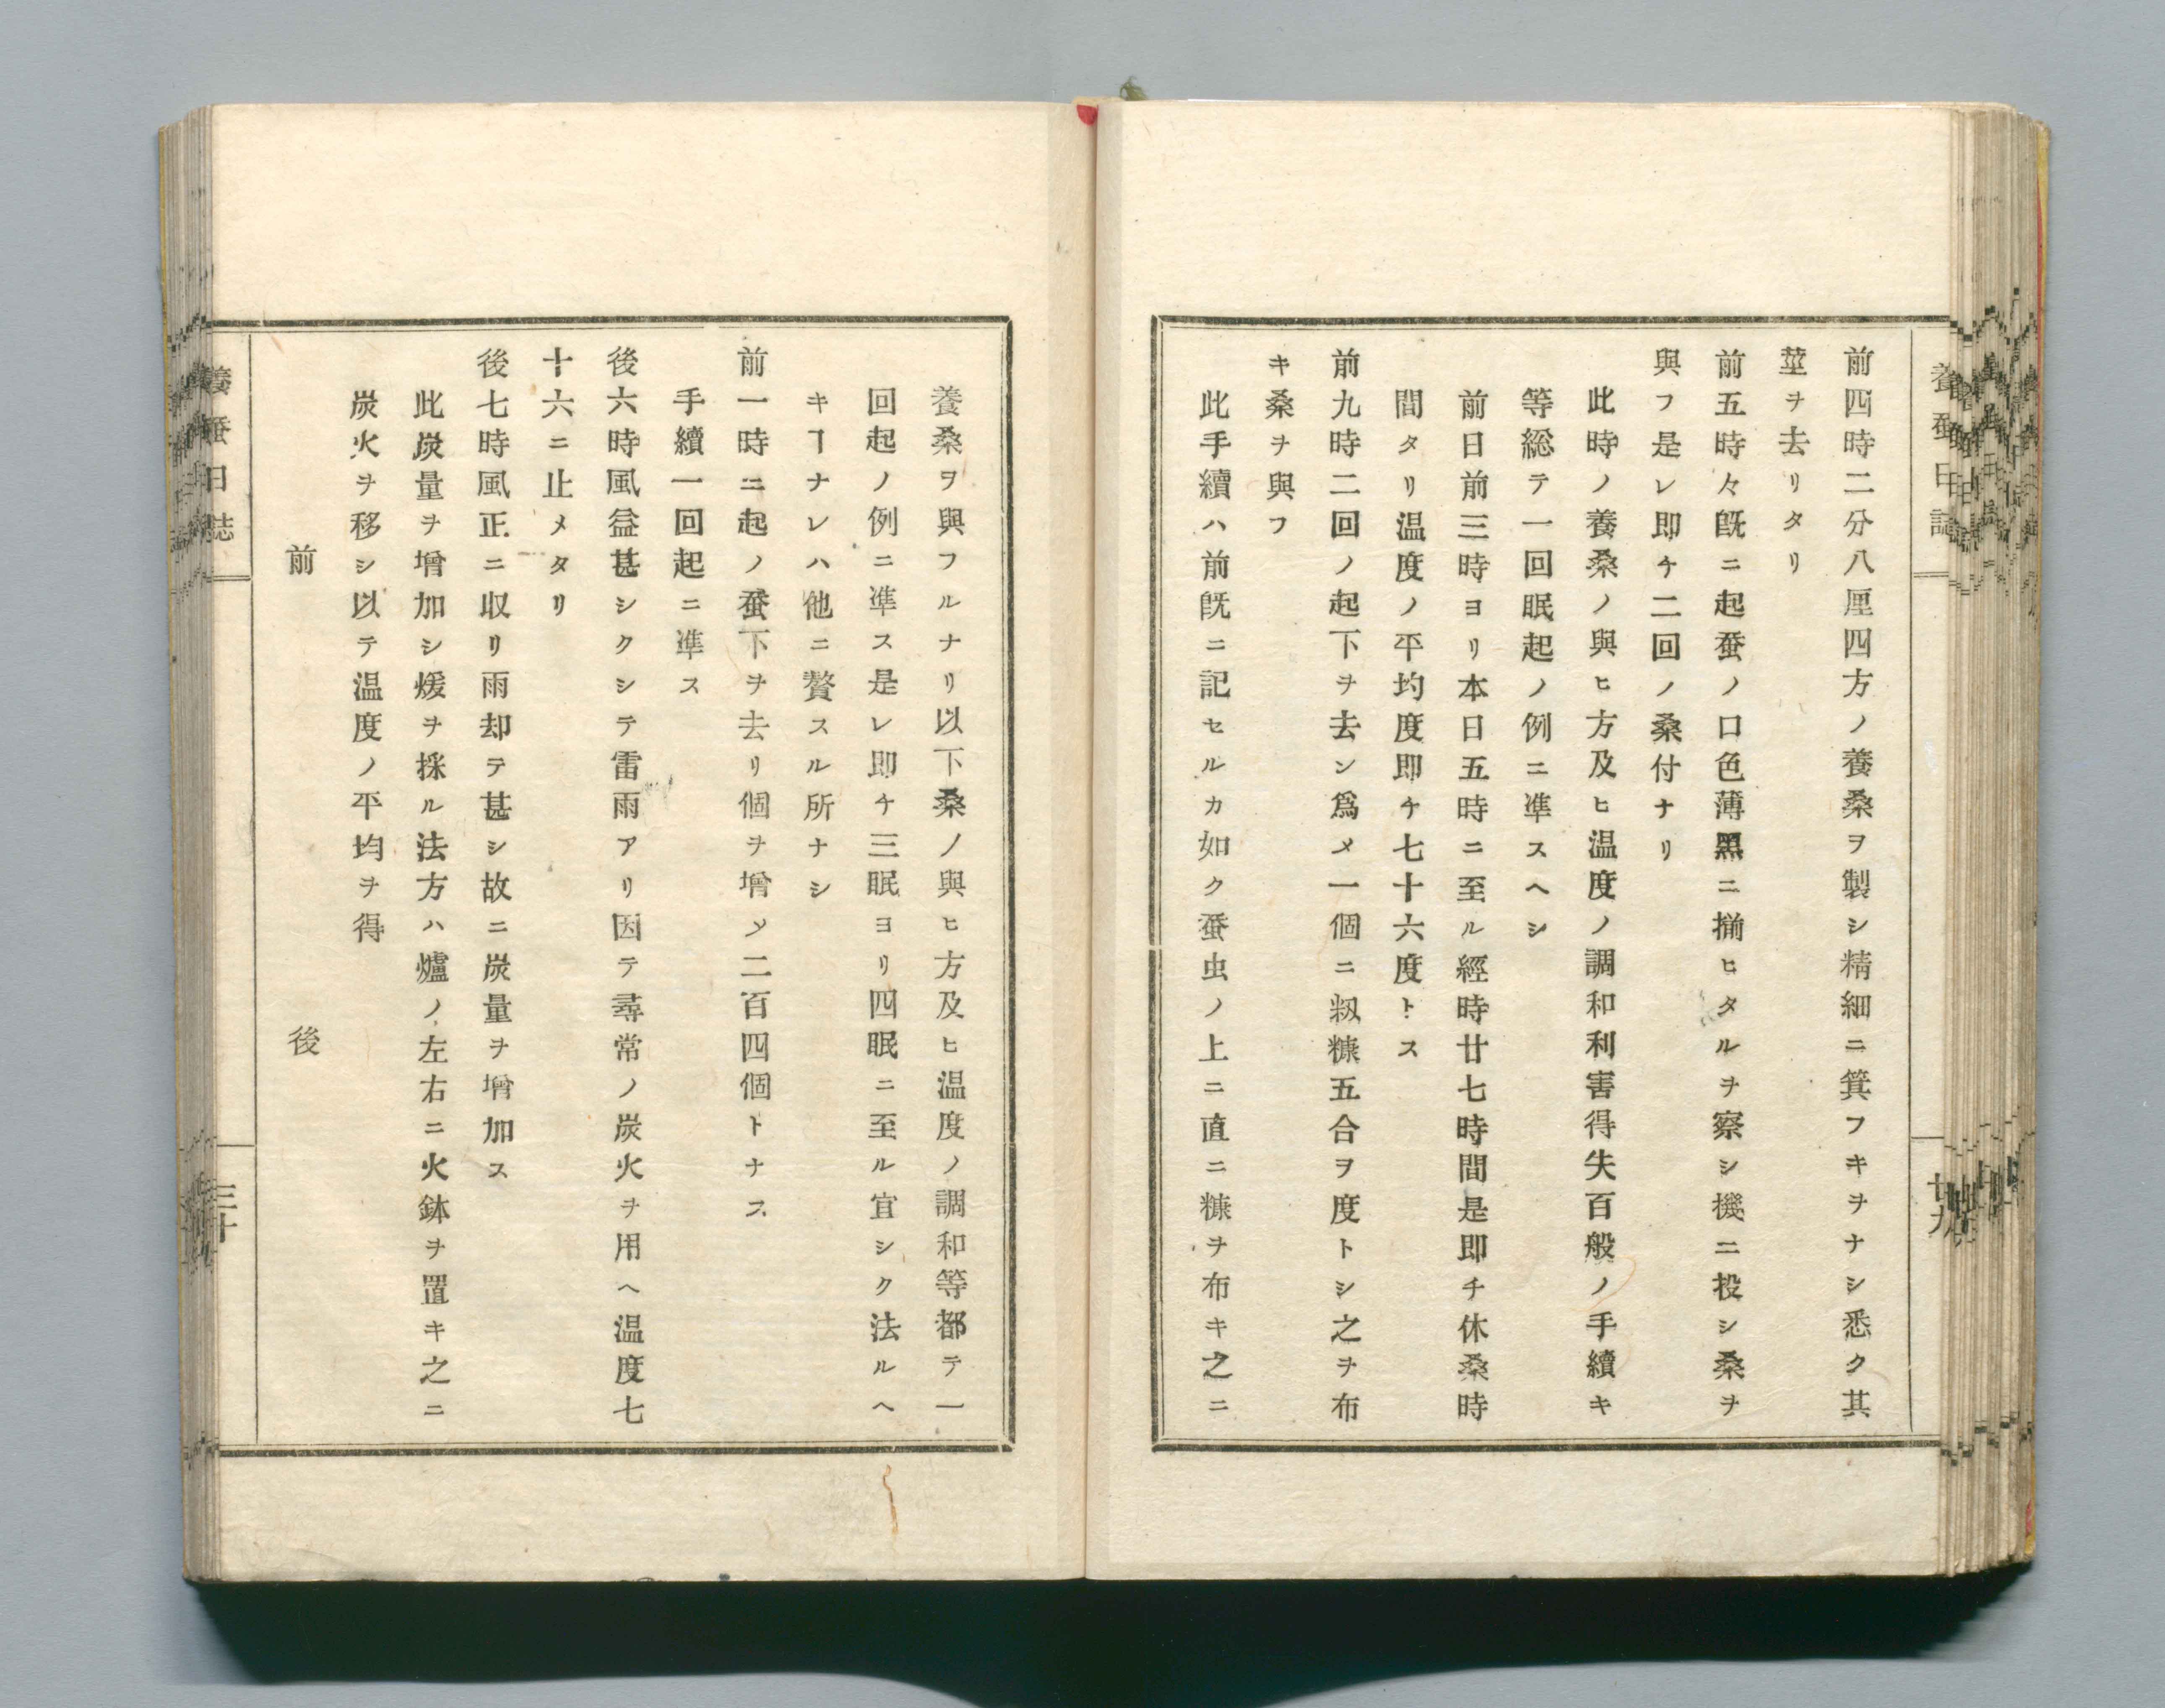 養蚕日誌
廿九
前四時二分八厘四方ノ養桑ヲ製シ精細ニ箕フキヲナシ悉ク其
莖ヲ去リタリ
前五時々既ニ起蚕ノ口色薄黒ニ揃ヒタルヲ察シ機ニ投シ桑ヲ
與フ是レ即チ二回ノ桑付ナリ
此時ノ養桑ノ與ヒ方及ヒ温度ノ調和利害得失百般ノ手續キ
等総テ一回眠起ノ例ニ準スヘシ
前日前三時ヨリ本日五時ニ至ル經時廿七時間是即チ休桑時
間タリ温度ノ平均度即チ七十六度トス
前九時二回ノ起下ヲ去ン爲メ一個ニ籾糠五合ヲ度トシ之ヲ布
キ桑ヲ與フ
此手續ハ前既ニ記セルカ如ク蚕虫ノ上ニ直ニ糠ヲ布キ之ニ
養桑ヲ與フルナリ以下桑ノ與ヒ方及ヒ温度ノ調和等都テ一
回起ノ例ニ準ス是レ即チ三眠ヨリ四眠ニ至ル宜シク法ルヘ
キヿナレハ他ニ贅スル所ナシ
前一時ニ起ノ蚕下ヲ去リ個ヲ增メ二百四個トナス
手續一回起ニ準ス
後六時風益甚シクシテ雷雨アリ因テ尋常ノ炭火ヲ用ヘ温度七
十六ニ止メタリ
後七時風正ニ収リ雨却テ甚シ故ニ炭量ヲ增加ス
此炭量ヲ增加シ煖ヲ採ル法方ハ爐ノ左右ニ火鉢ヲ置キ之ニ
炭火ヲ移シ以テ温度ノ平均ヲ得
前 後
養蚕日誌
三十